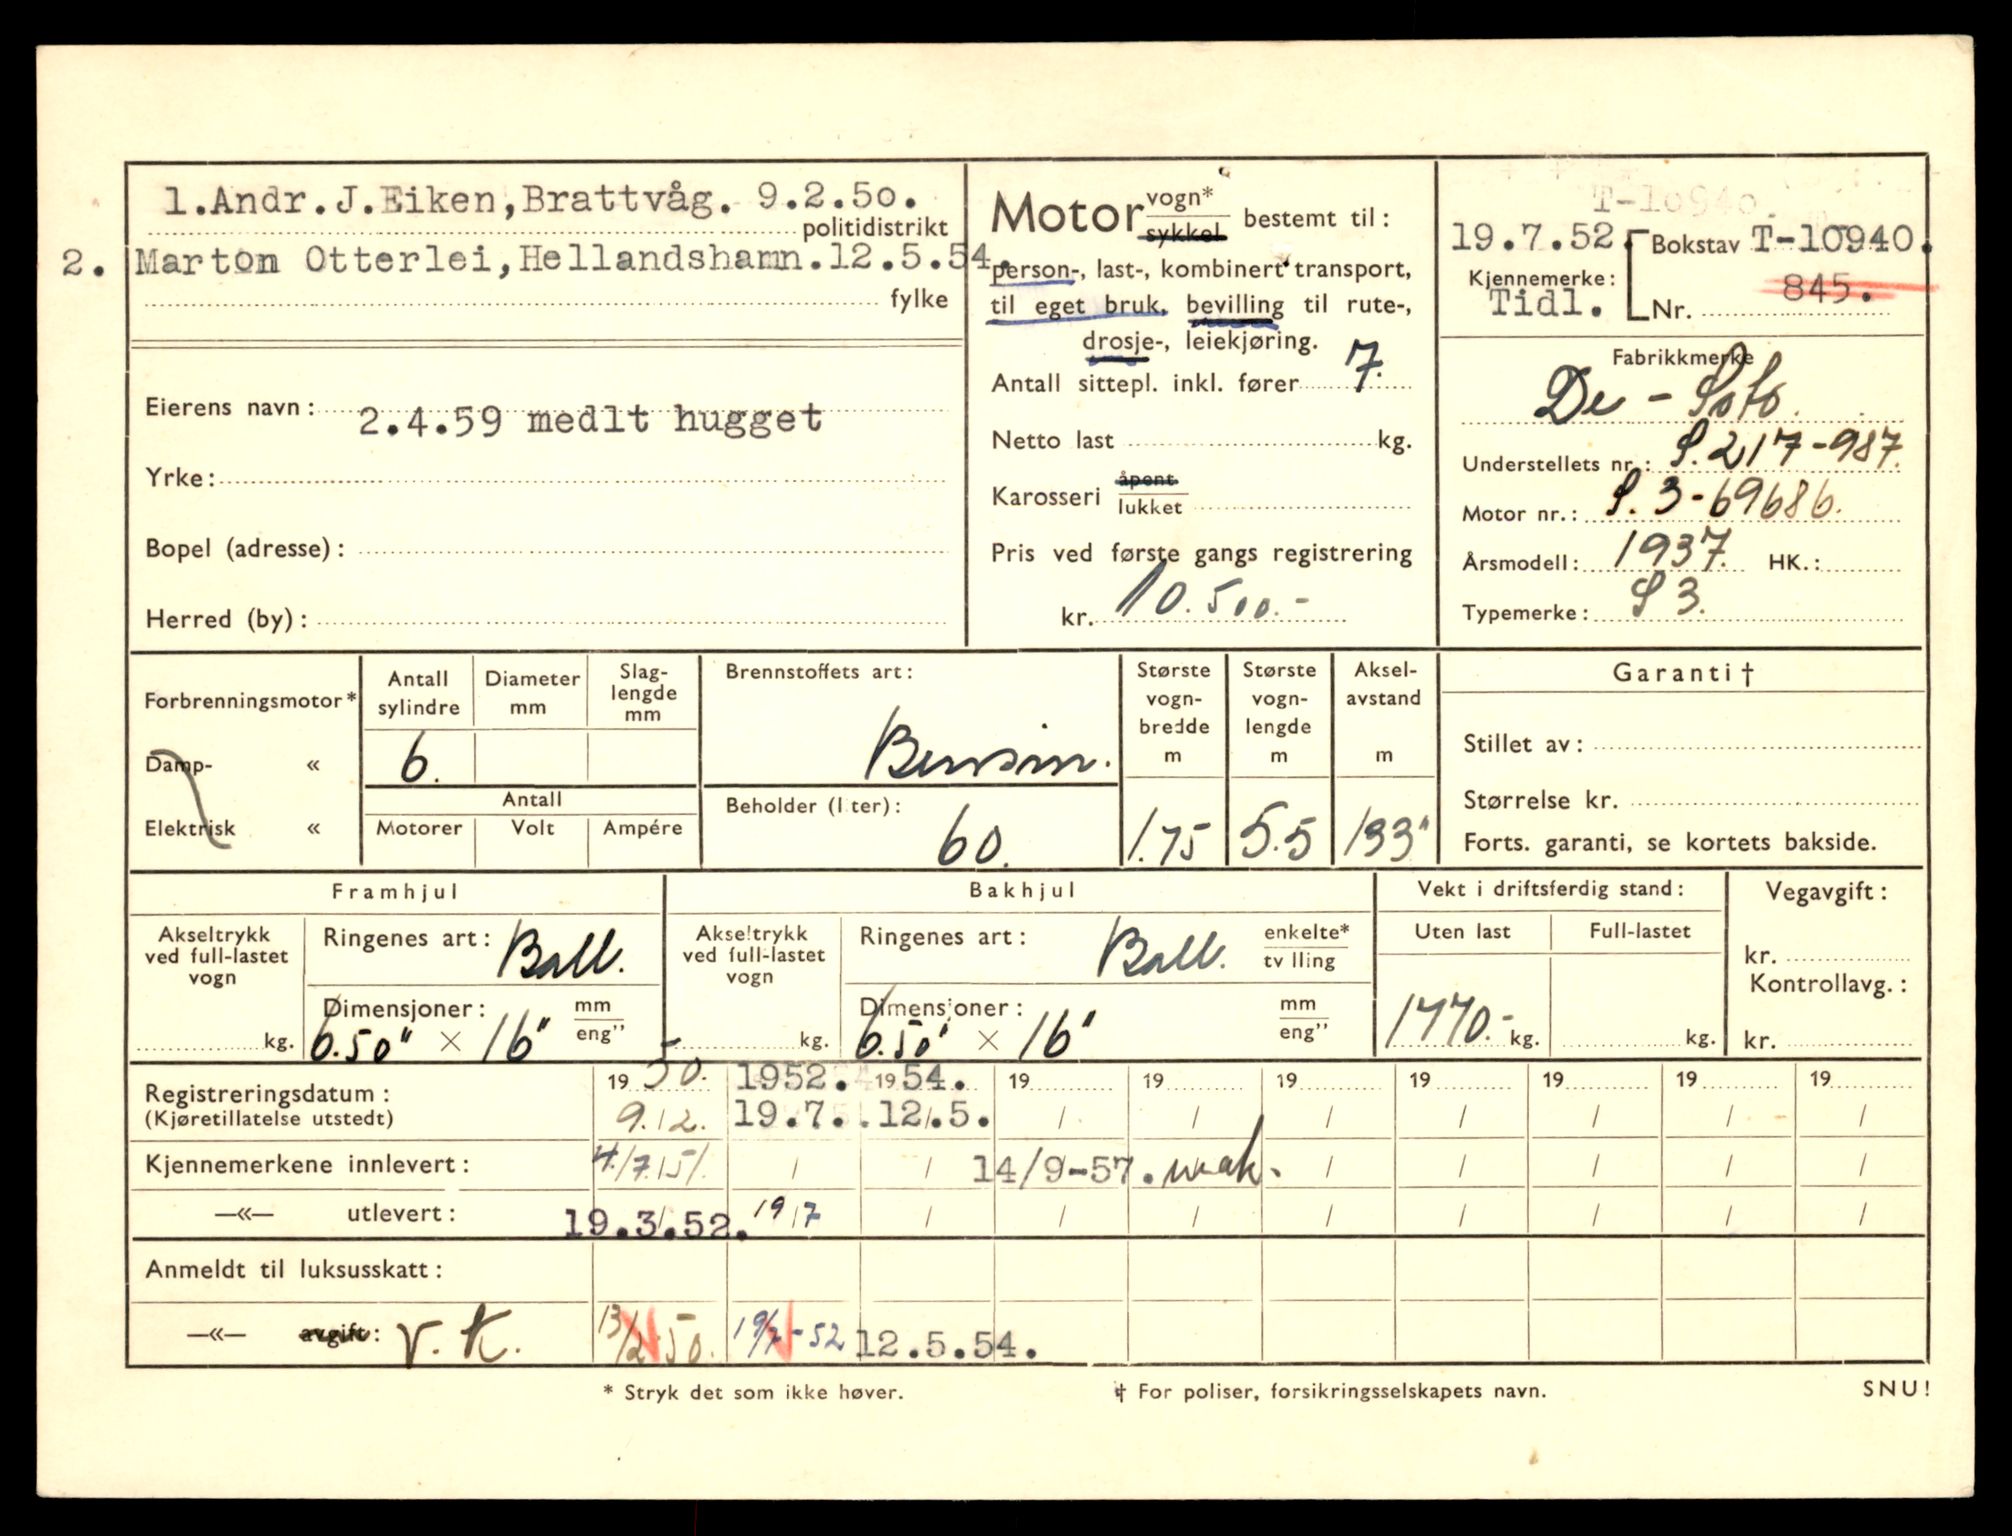 1.Andr.J.Eiken,Brattvåg. 9.2.50.
politidistrikt
2. Marton Otterlei,Hellandshamn.12.5.54.
fylke
Eierens navn: 2.4.59 medlt hugget
Yrke:
Bopel (adresse):
Herred (by):
Motor vogn* sykkel bestemt til:
person-, last-, kombinert transport,
til eget bruk, bevilling til rute-,
drosje-, leiekjøring.
Antall sittepl. inkl. fører 7.
Netto last kg.
Karosseri åpent lukket
Pris ved første gangs registrering
kr. 10.500.-
T-10940.
19.7.52. Bokstav T-10940.
Kjennemerke:
Tidl. Nr. 845.
Fabrikkmerke
De-Soto.
Understellets nr.: S.217-987.
Motor nr.: S.3-69686.
Årsmodell: 1937. HK.:
Typemerke: S3.
Forbrenningsmotor*
Damp- «
Elektrisk «
Antall sylindre
Diameter mm
Slag-lengde mm
6.
Antall
Motorer Volt Ampére
Brennstoffets art:
Bensin.
Beholder (liter):
60.
Største vogn-bredde m
Største vogn-lengde m
Aksel-avstand m
1.75 5.5 133"
Garanti†
Stillet av:
Størrelse kr.
Forts. garanti, se kortets bakside.
Framhjul
Akseltrykk ved full-lastet vogn
kg.
Ringenes art: Ball.
Dimensjoner: mm eng"
6.50" × 16"
Bakhjul
Akseltrykk ved full-lastet vogn
kg.
Ringenes art: Ball. enkelte* tvilling
Dimensjoner: mm eng"
6.50" × 16"
Vekt i driftsferdig stand:
Uten last Full-lastet
1770.- kg. kg.
Vegavgift:
kr.
Kontrollavg.:
kr.
Registreringsdatum: 1950. 1952. 1954. 19 19 19 19 19 19 19
(Kjøretillatelse utstedt) 9./2. 19.7. 12/.5. / / / / / / /
Kjennemerkene innlevert: 4./7.51. / / 14/9-57. vrak. / / / / /
—«— utlevert: 19.3.52. 19/7 / / / / / / / /
Anmeldt til luksusskatt:
—«— avgift: V.K. 13/2 50. 19/7-52 12.5.54.
* Stryk det som ikke høver.
† For poliser, forsikringsselskapets navn.
SNU!